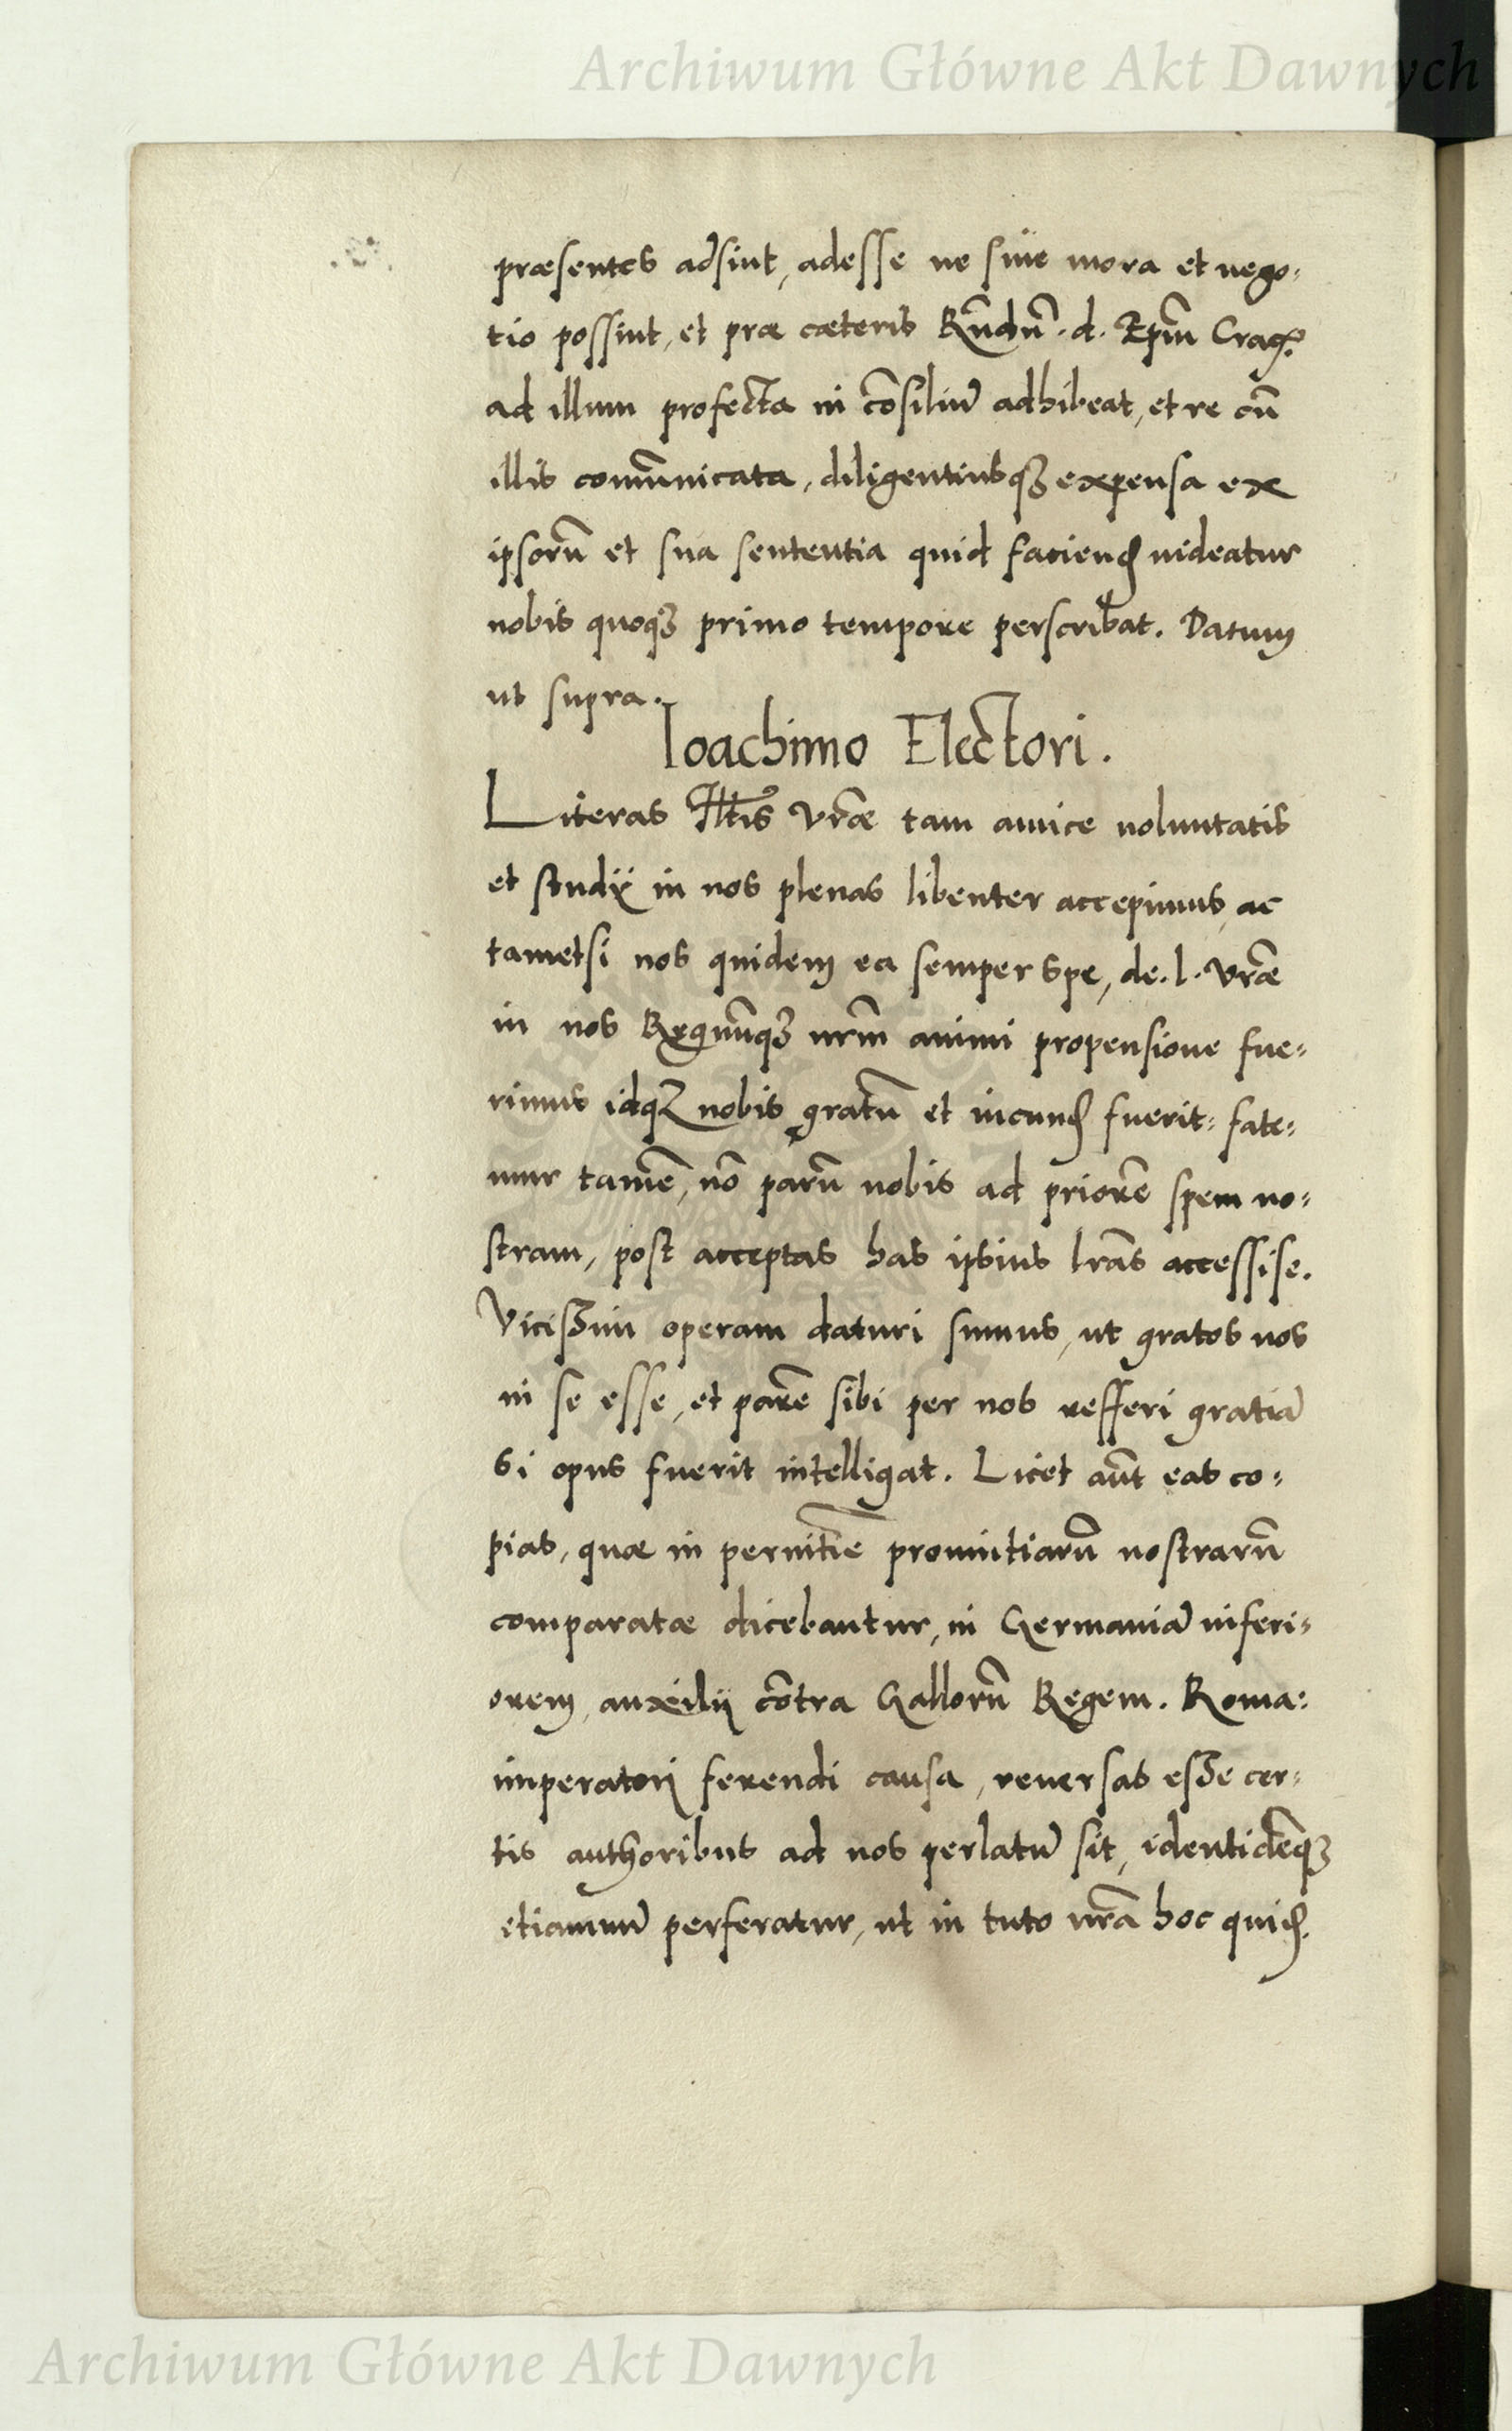 Archiwum Główne Akt Dawnych
præsentes adsint, adesse ne sine mora et nego-
tio possint, et præ cæteris Rn̄dn̄. d. Ep̄m Crac.
ad illum profecta in cōsiliū adhibeat, et re cū
illis com̄unicata, diligentiusq3 expensa ex
ipsorū et sua sententia quid faciend videatur
nobis quoq3 primo tempore perscribat. Datum
ut supra.
Ioachimo Electori.
Literas Illtis vrāe tam amice voluntatis
et studij in nos plenas libenter accepimus, ac
tametsi nos quidem ea semper spe, de. l. vrāe
in nos Regnūq3 nrm̄ animi propensione fue-
rimus idq3 nobis gratū et iucund fuerit: fate-
mur tamē, nō parū nobis ad priorē spem no-
stram, post acceptas has ipsius lrās accessise.
Vicissim operam daturi sumus, ut gratos nos
in se esse, et parē sibi per nos refferi gratiā
si opus fuerit intelligat. Licet aūt eas co-
pias, quæ in pernitiē provintiarū nostrarū
comparatæ dicebantur, in Germaniā inferi-
orem, auxilij cōtra Gallorū Regem. Roma:
imperatori ferendi causa, reversas esse cer-
tis authoribus ad nos perlatū sit, identidēq3
etiamnū perferatur, ut in tuto nrā hoc quid.
Archiwum Główne Akt Dawnych